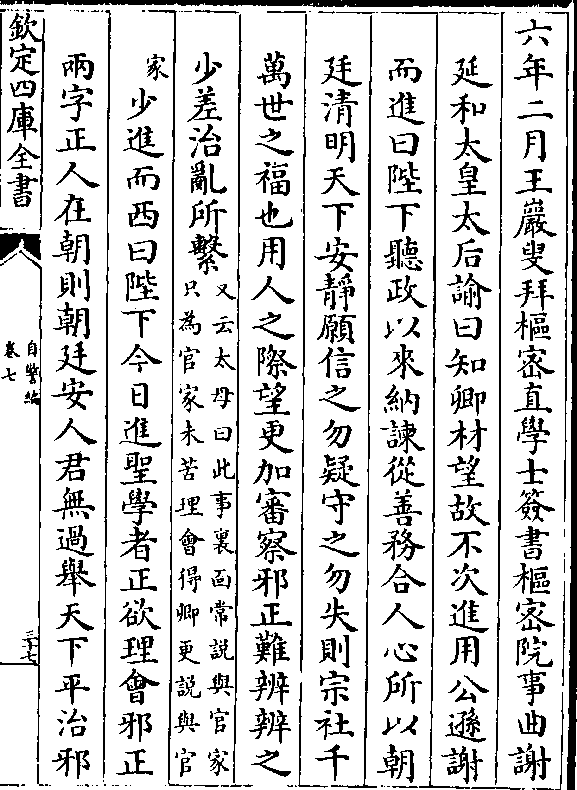 六年二月王巖叟拜樞密直學士簽書樞密院事曲謝
延和太皇太后諭曰知卿材望故不次進用公遜謝
而進曰陛下聽政以來納諫從善務合人心所以朝
廷清明天下安靜願信之勿疑守之勿失則宗社千
萬世之福也用人之際望更加審察邪正難辨辨之
少差治亂所繫又云太母曰此事裏面常説與官家
只為官家未苦理會得卿更説與官
家少進而西曰陛下今日進聖學者正欲理會邪正
兩字正人在朝則朝廷安人君無過舉天下平治邪
欽定四庫全書
自警編
卷七
三十七